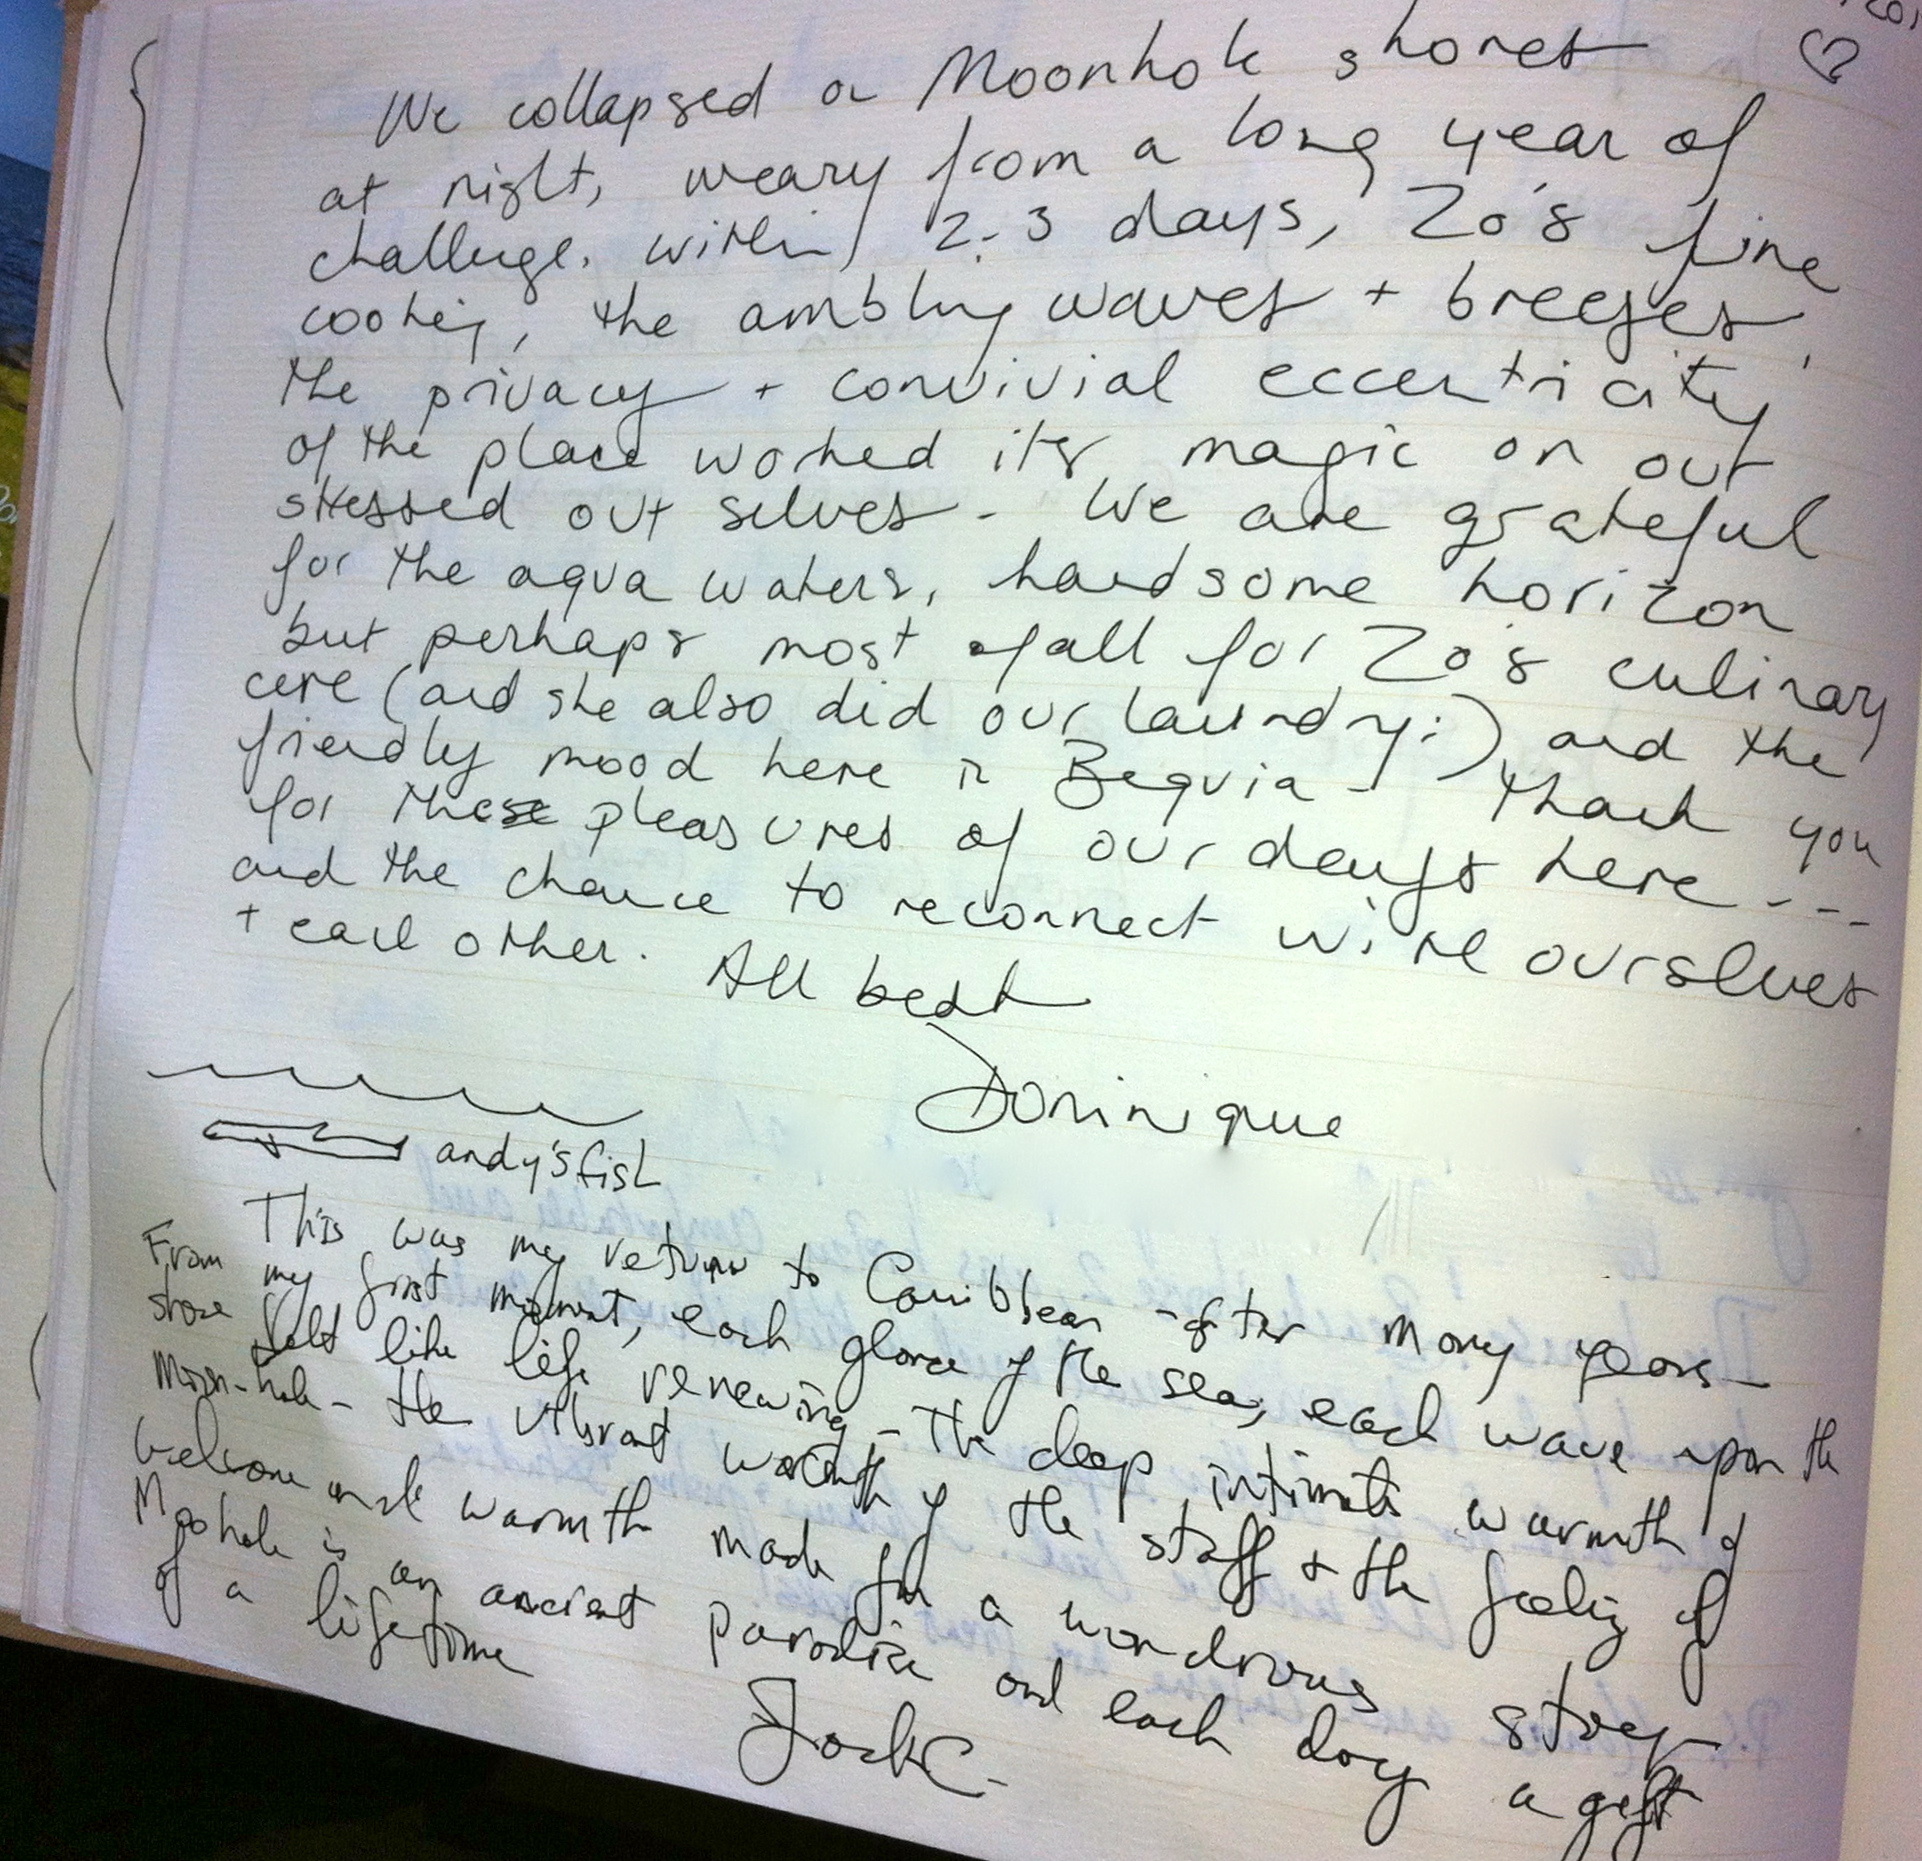 201
We collapsed on Moonhole shores
at night, weary from a long year of
challenge. within 2-3 days, Zo's fine
cooking, the ambling waves + breezes,
the privacy + convivial eccentricity
of the place worked its magic on our
stressed out selves - We are grateful
for the aqua waters, handsome horizon
but perhaps most of all for Zo's culinary
care (and she also did our laundry :) and the
friendly mood here in Bequia - Thank you
for these pleasures of our days here ---
and the chance to reconnect with ourselves
+ each other. All best
Dominique
andy's fish
This was my return to Caribbean after many years -
From my first moment, each glance of the sea, each wave upon the
shore felt like life renewing - The deep intimate warmth of
Moon-hole - the vibrant warmth of the staff + the feeling of
welcome and warmth made for a wondrous stay
Moohole is an ancient paradise and each day a gift
of a lifetime
Jack C-